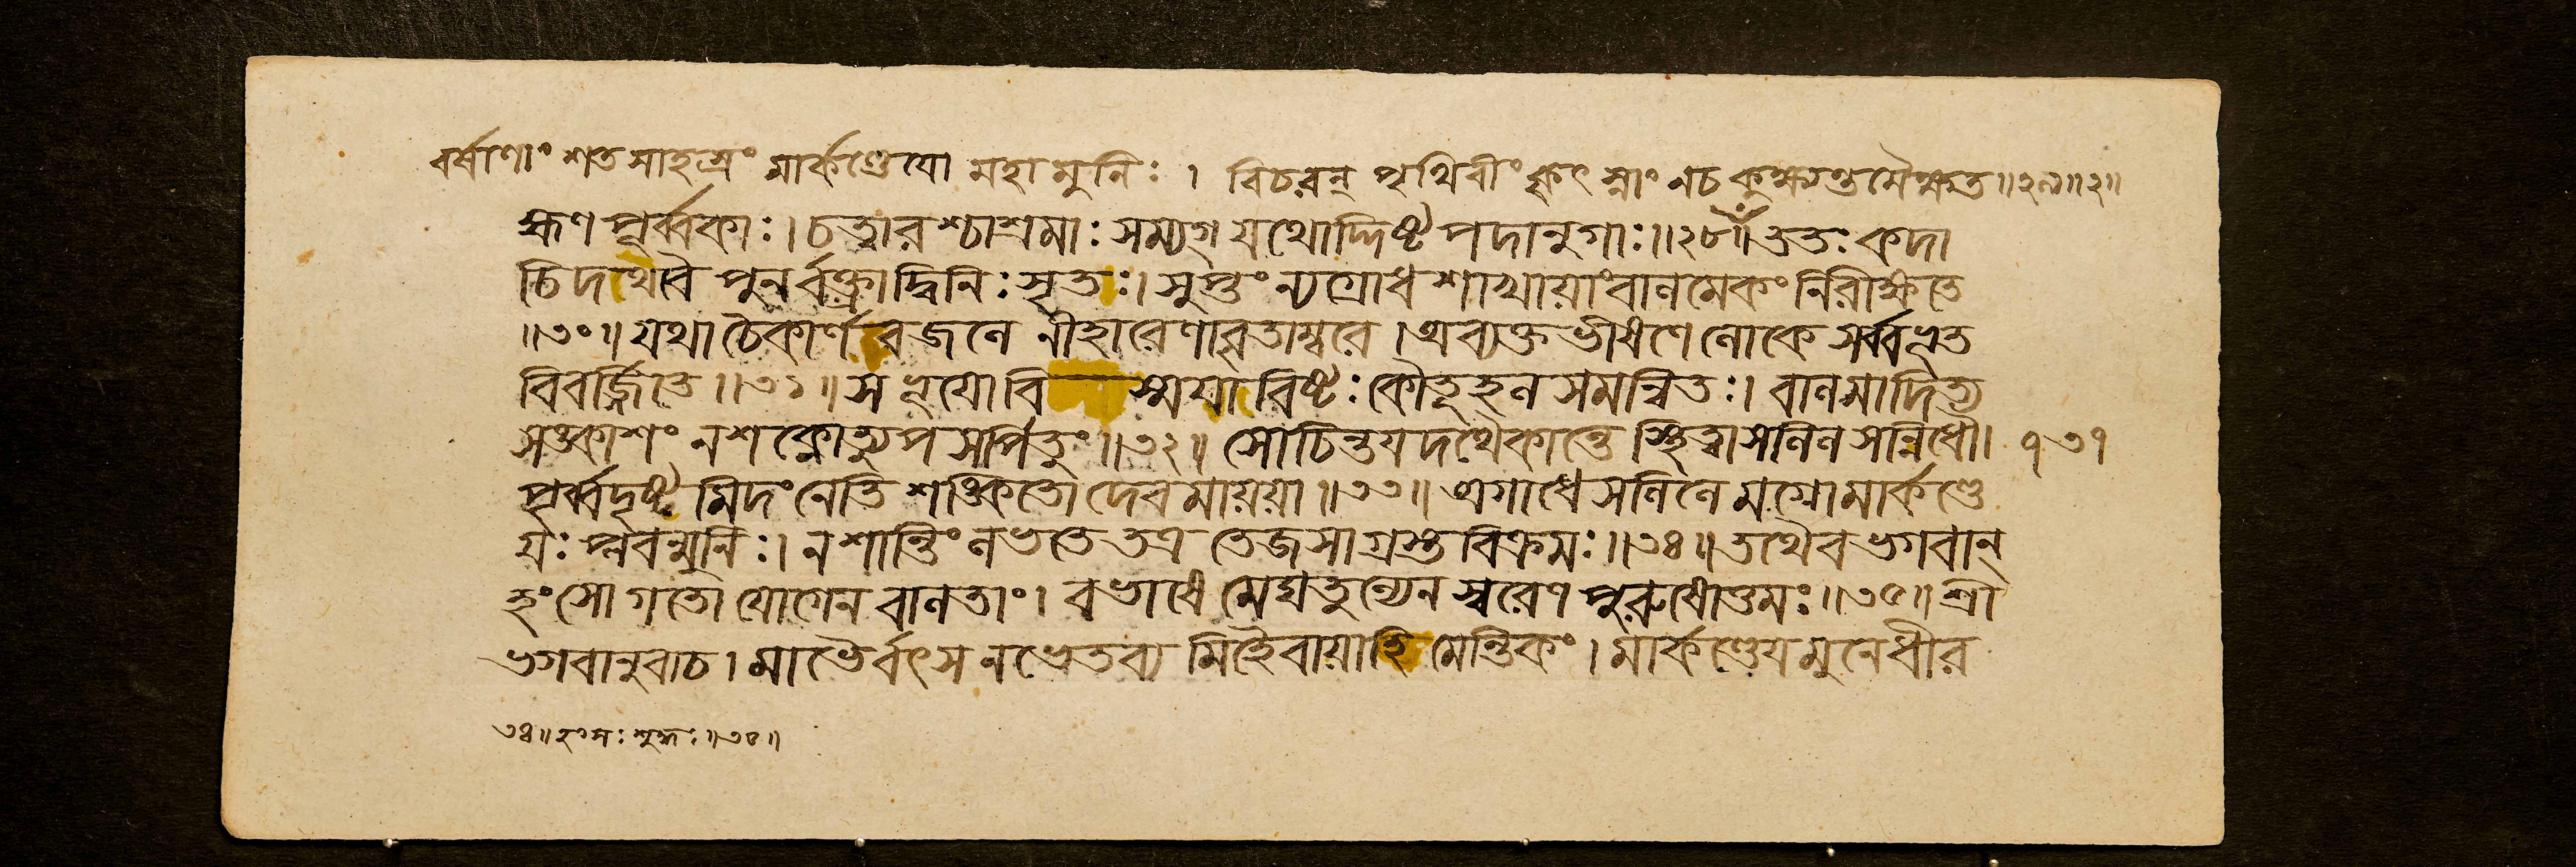 বর্ষাণাং শতসাহস্রং মার্কণ্ডেয়ো মহামুনিঃ । বিচরন্ পৃথিবীং কৃৎস্নাং নচ কুক্ষ্যন্তমৈক্ষত ॥২৯॥২॥
হ্মণপূর্ব্বকাঃ । চত্বারশ্চাশ্রমাঃ সম্যগ্ যথোদ্দিষ্টপদানুগাঃ ॥২৮॥ ততঃ কদা
চিদথৈব পুনর্বক্ত্রাদ্বিনিঃসৃতঃ । সুপ্তং ন্যগ্রোধশাখায়াং বালমেকং নিরীক্ষতে
॥৩০॥ যথা চৈকার্ণবজলে নীহারেণাবৃতাম্বরে । অব্যক্তভীষণে লোকে সর্ব্বভূত
বিবর্জ্জিতে ॥৩১॥ স ভূয়ো বিস্ময়াবিষ্টঃ কৌতূহলসমন্বিতঃ । বালমাদিত্য
সঙ্কাশং ন শক্নোত্যুপসর্পিতুং ॥৩২॥ সোচিন্তয়দথৈকান্তে স্থিত্বা সলিলসন্নিধৌ । ১৩১
পূর্ব্বদৃষ্টমিদং নেতি শঙ্কিতো দেবমায়য়া ॥৩৩॥ অগাধে সলিলে মগ্নো মার্কণ্ডে
য়ঃ প্লবন্মুনিঃ । ন শান্তিং লভতে তত্র তেজসা গ্রস্তবিক্রমঃ ॥৩৪॥ তথৈব ভগবান্
হংসো গতো যোগেন বালতাং । বভাষে মেঘতুল্যেন স্বরেণ পুরুষোত্তমঃ ॥৩৫॥ শ্রী
ভগবানুবাচ । মাভৈর্বৎস ন ভেতব্যমিহৈবায়াহি মেন্তিকং । মার্কণ্ডেয় মুনে ধীর
৩৪॥ হংসঃ শুক্লঃ ॥৩৫॥